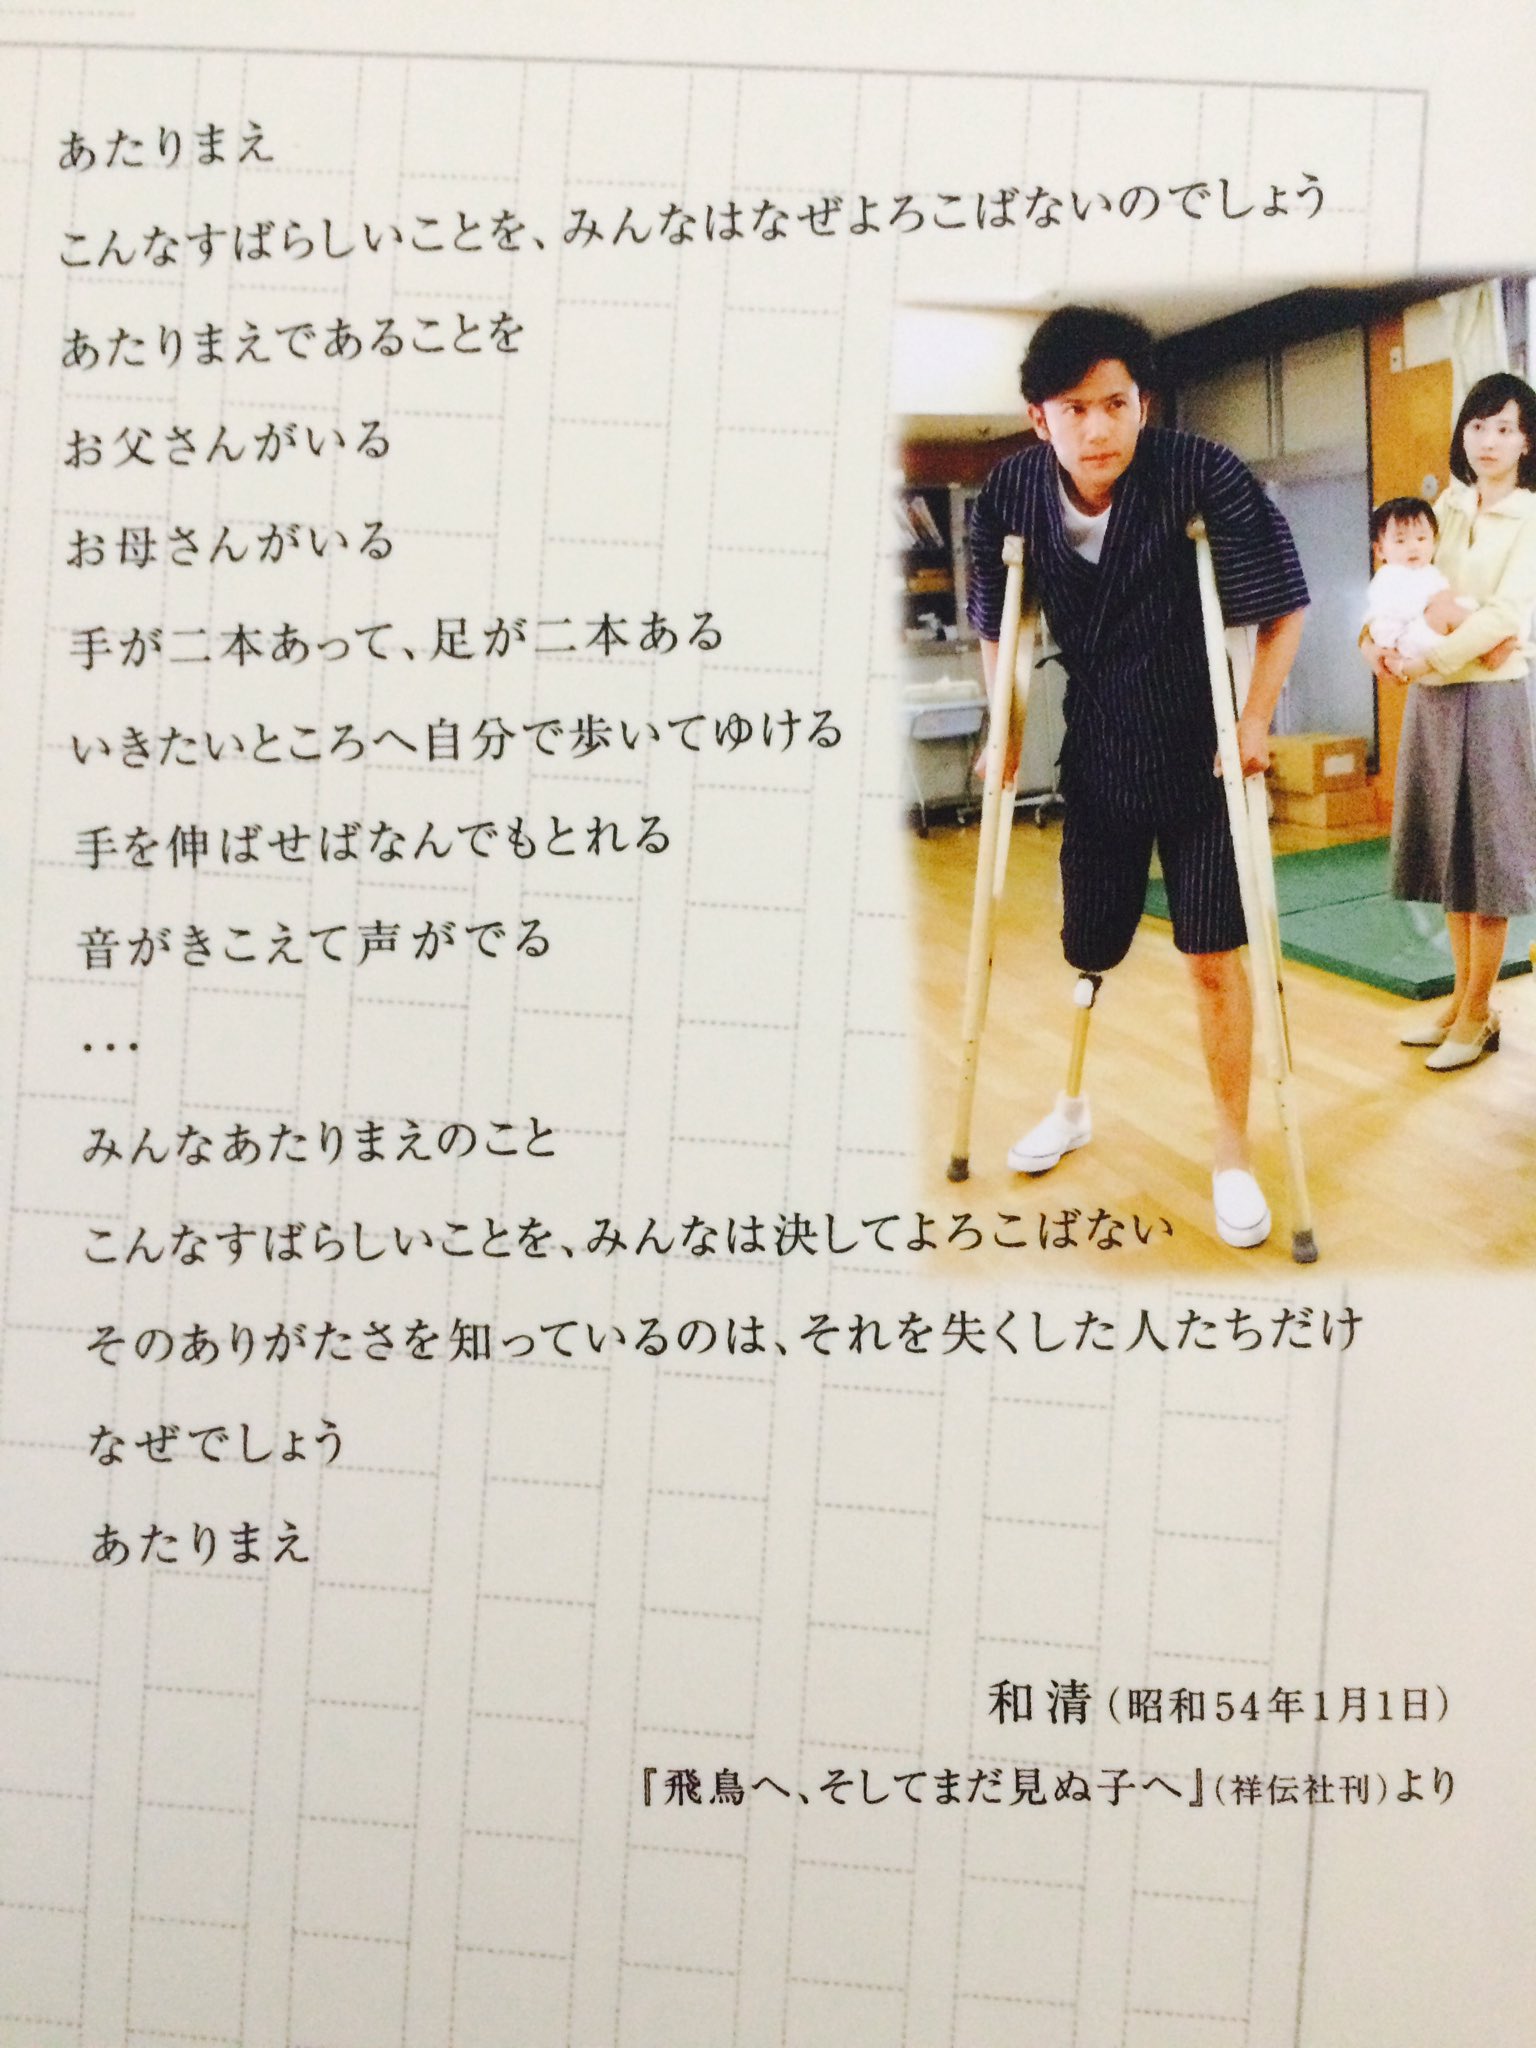 あたりまえ
こんなすばらしいことを、みんなはなぜよろこばないのでしょう
あたりまえであることを
お父さんがいる
お母さんがいる
手が二本あって、足が二本ある
いきたいところへ自分で歩いてゆける
手を伸ばせばなんでもとれる
音がきこえて声がでる
…
みんなあたりまえのこと
こんなすばらしいことを、みんなは決してよろこばない
そのありがたさを知っているのは、それを失くした人たちだけ
なぜでしょう
あたりまえ
和清（昭和54年1月1日）
『飛鳥へ、そしてまだ見ぬ子へ』（祥伝社刊）より